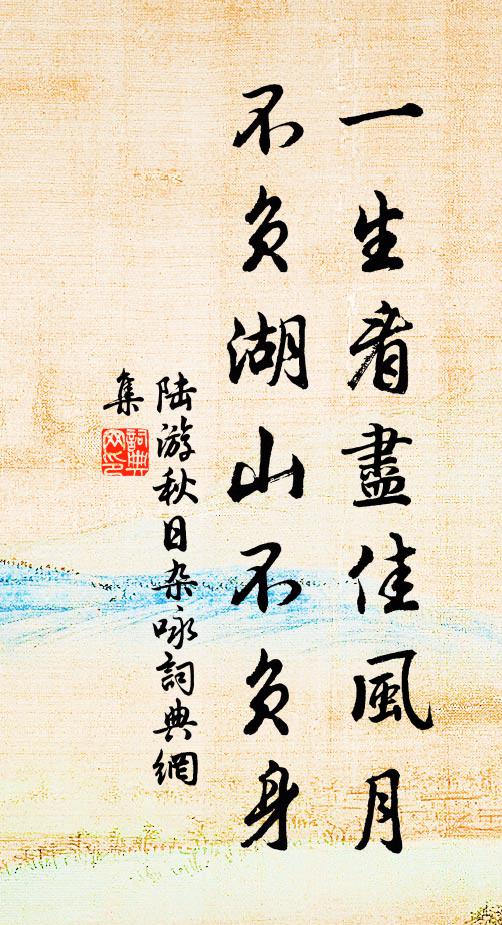 一生看盡佳風月
不負湖山不負身
陆游秋日杂咏詞典網
集
詞典
网印